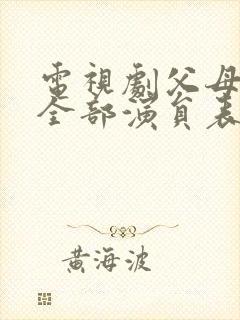 電視劇父母
全部演員表
黃海波